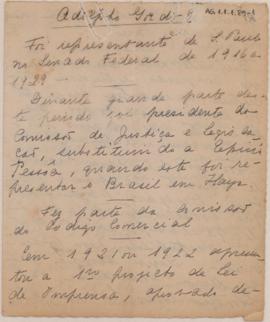 Adolpho Gordo -
AG.1.1.1.89-1
Foi representante de S. Paulo
no Senado Federal de 1916 a
1929 -
Durante grande parte des-
te periodo foi presidente da
Comissão de Justiça e legis-
lação, substituindo a Epitacio
Pessôa, quando este foi re-
presentar o Brasil em Haya
Fez parte da comissão
do Codigo Comercial
Em 1921 ou 1922 apresen-
tou o 1º projecto de Lei
de Imprensa, apoiado de-